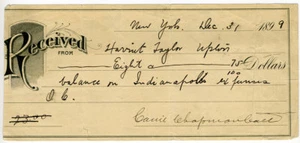 New York, Dec 31 1899
Received
FROM Harriet Taylor Upton
Eight & 75/100 Dollars
balance on Indianapolis
O. C.
Carrie Chapman Catt